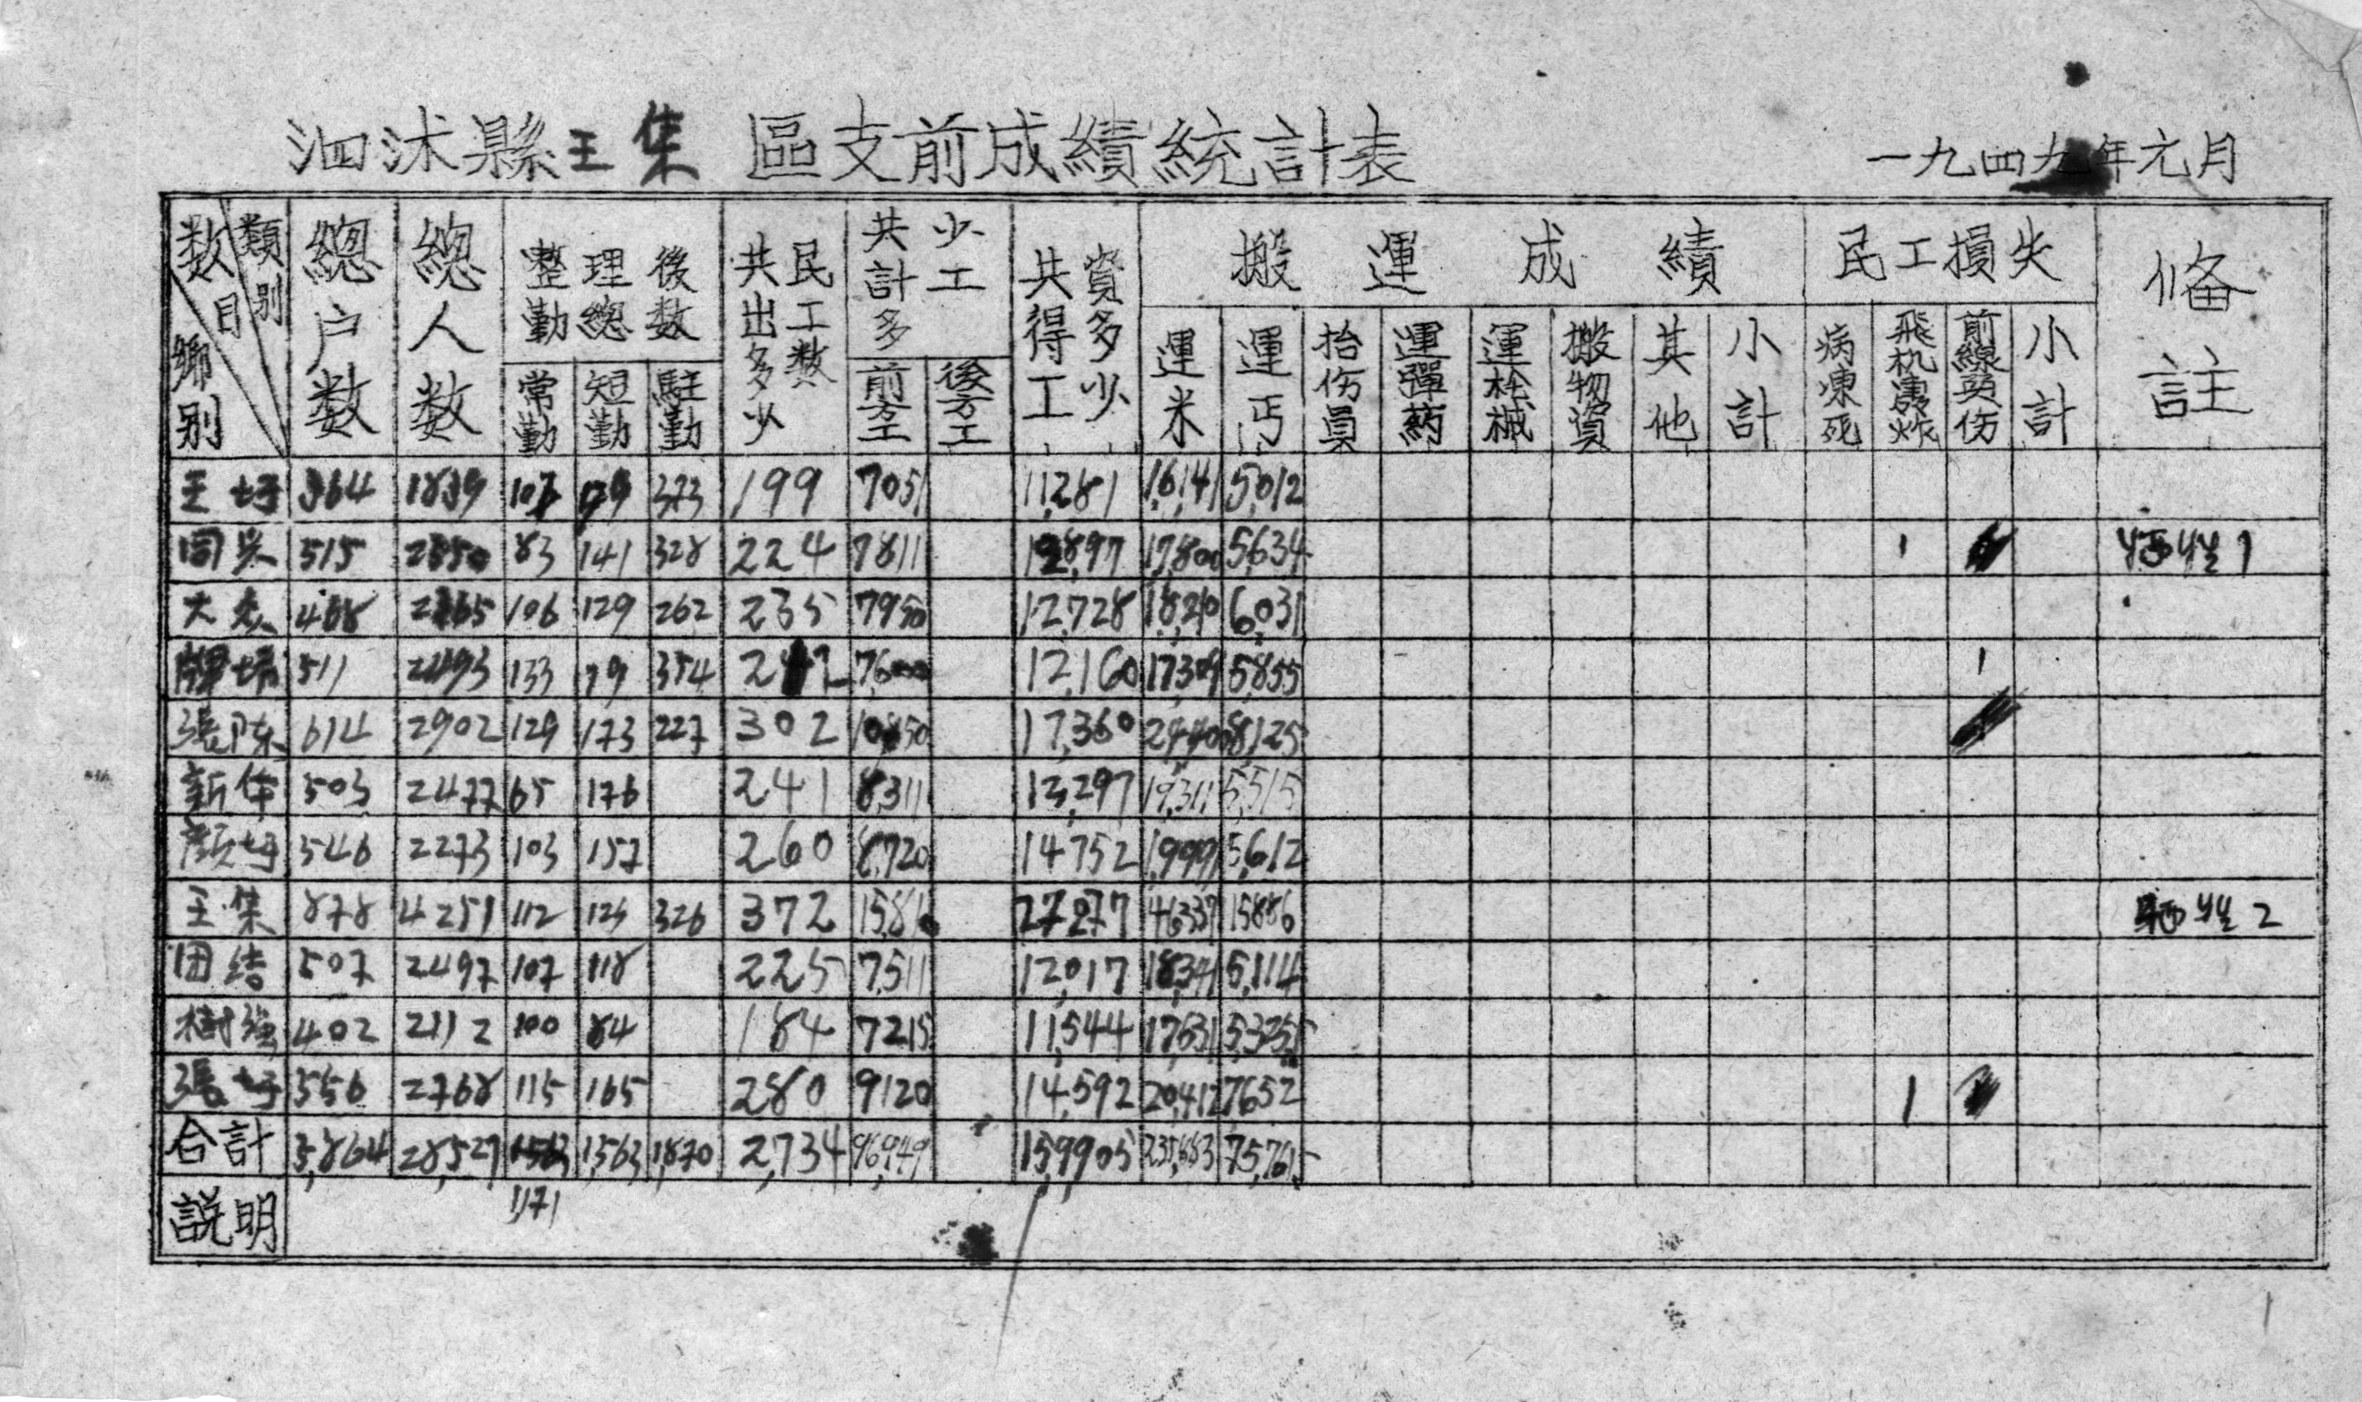 泗沭縣王集 區支前成績統計表
一九四九年元月
数目 類別 鄉別 總户数 總人数 整理後勤總数 共出民工数多少 共計多少工 共得工資多少 搬運成績 民工損失 俻註
常勤 短勤 駐勤 前方工 後方工 運米 運丏 抬伤員 運彈葯 運枪械 搬物資 其他 小計 病凍死 飛机轟炸 前線英伤 小計
王圩 364 1839 107 199 373 199 7051 11,281 16,141 5,012
同兴 515 83 141 328 224 7811 17,800 5,634 1 牺牲1
大 468 106 129 262 235 7950 12,728 6,031
牌坊 511 2493 133 99 354 7,600 12,160 17,309 5,855 1
張陈 614 2902 129 173 227 302 10850 17,360 8,125
新华 503 2477 65 176 241 8,311 13,297 19,311 5,515
顔圩 546 2273 103 157 260 8,720 14752 1,9991 5,612
王集 878 4251 112 124 326 372 27277 46337 15886 牺牲2
团结 507 2497 107 118 225 7,511 12,017 18,341 5,114
樹强 402 2112 100 84 184 7215 11,544 17631 5,325
張圩 556 2768 115 165 280 9120 14,592 20,412 7652 1
合計 5,864 28,527 1563 1,870 2,734 96,949 159,905 75,761
1,171
説明